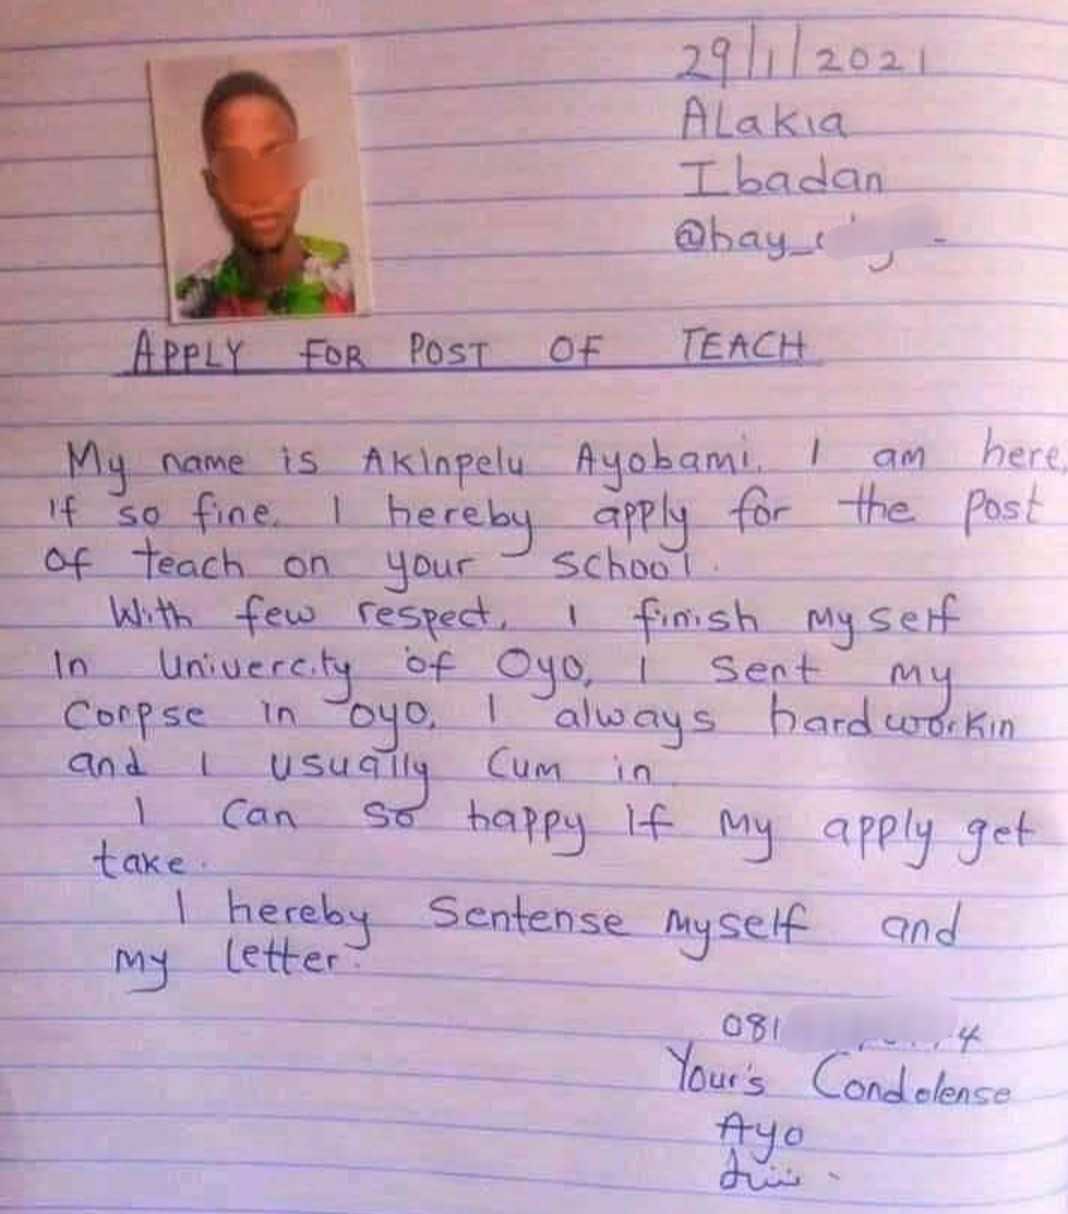 29/1/2021
ALakia
Ibadan
@bay_
APPLY FOR POST OF TEACH
My name is Akinpelu Ayobami. I am here,
if so fine. I hereby apply for the post
of teach on your school.
With few respect, I finish myself
In Univercity of Oyo, I sent my
Corpse in oyo, I always hardworkin
and I usually Cum in
I Can so happy if my apply get
take.
I hereby Sentense myself and
my letter.
081 4
Your's Condolense
Ayo